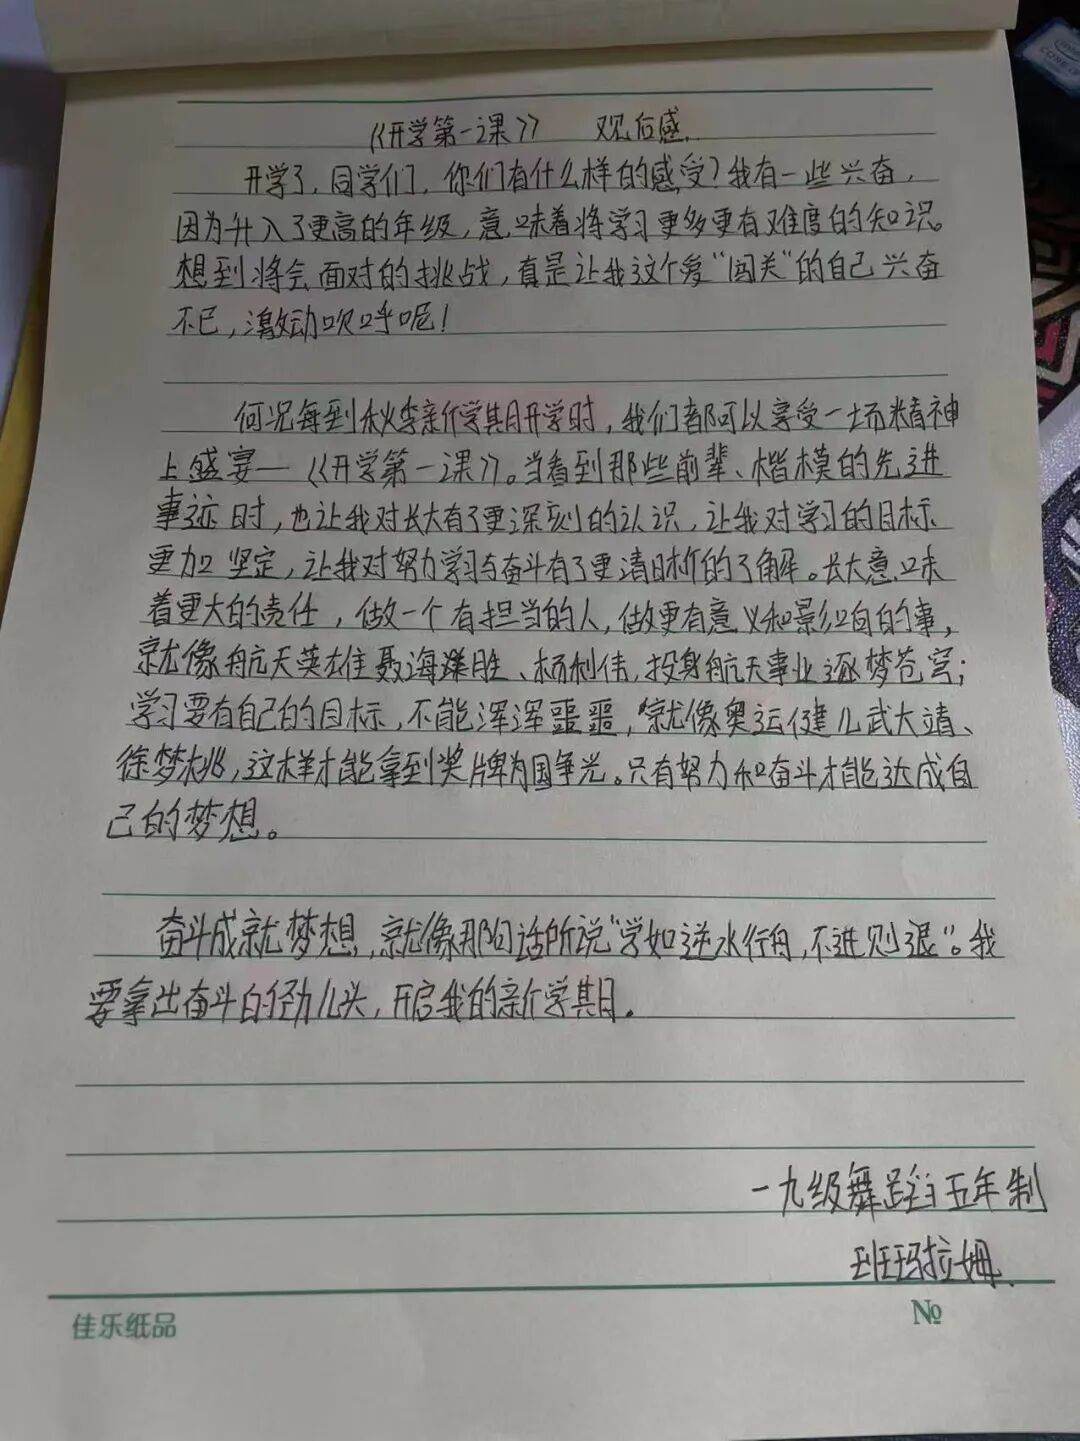 《开学第一课》 观后感.
开学了,同学们,你们有什么样的感受?我有一些兴奋,
因为升入了更高的年级,意味着将学习更多更有难度的知识。
想到将会面对的挑战,真是让我这个爱“闯关”的自己兴奋
不已,激动欢呼呢!
何况每到秋季新学期开学时,我们都可以享受一场精神
上盛宴—《开学第一课》。当看到那些前辈、楷模的先进
事迹时,也让我对长大有了更深刻的认识,让我对学习的目标
更加坚定,让我对努力学习与奋斗有了更清晰的了解。长大意味
着更大的责任,做一个有担当的人,做更有意义和影响的事,
就像航天英雄聂海胜、杨利伟,投身航天事业逐梦苍穹;
学习要有自己的目标,不能浑浑噩噩,就像奥运健儿武大靖、
徐梦桃,这样才能拿到奖牌为国争光。只有努力和奋斗才能达成自
己的梦想。
奋斗成就梦想,就像那句话所说“学如逆水行舟,不进则退”。我
要拿出奋斗的劲儿头,开启我的新学期。
一九级舞蹈五年制
班玛拉姆.
佳乐纸品
№